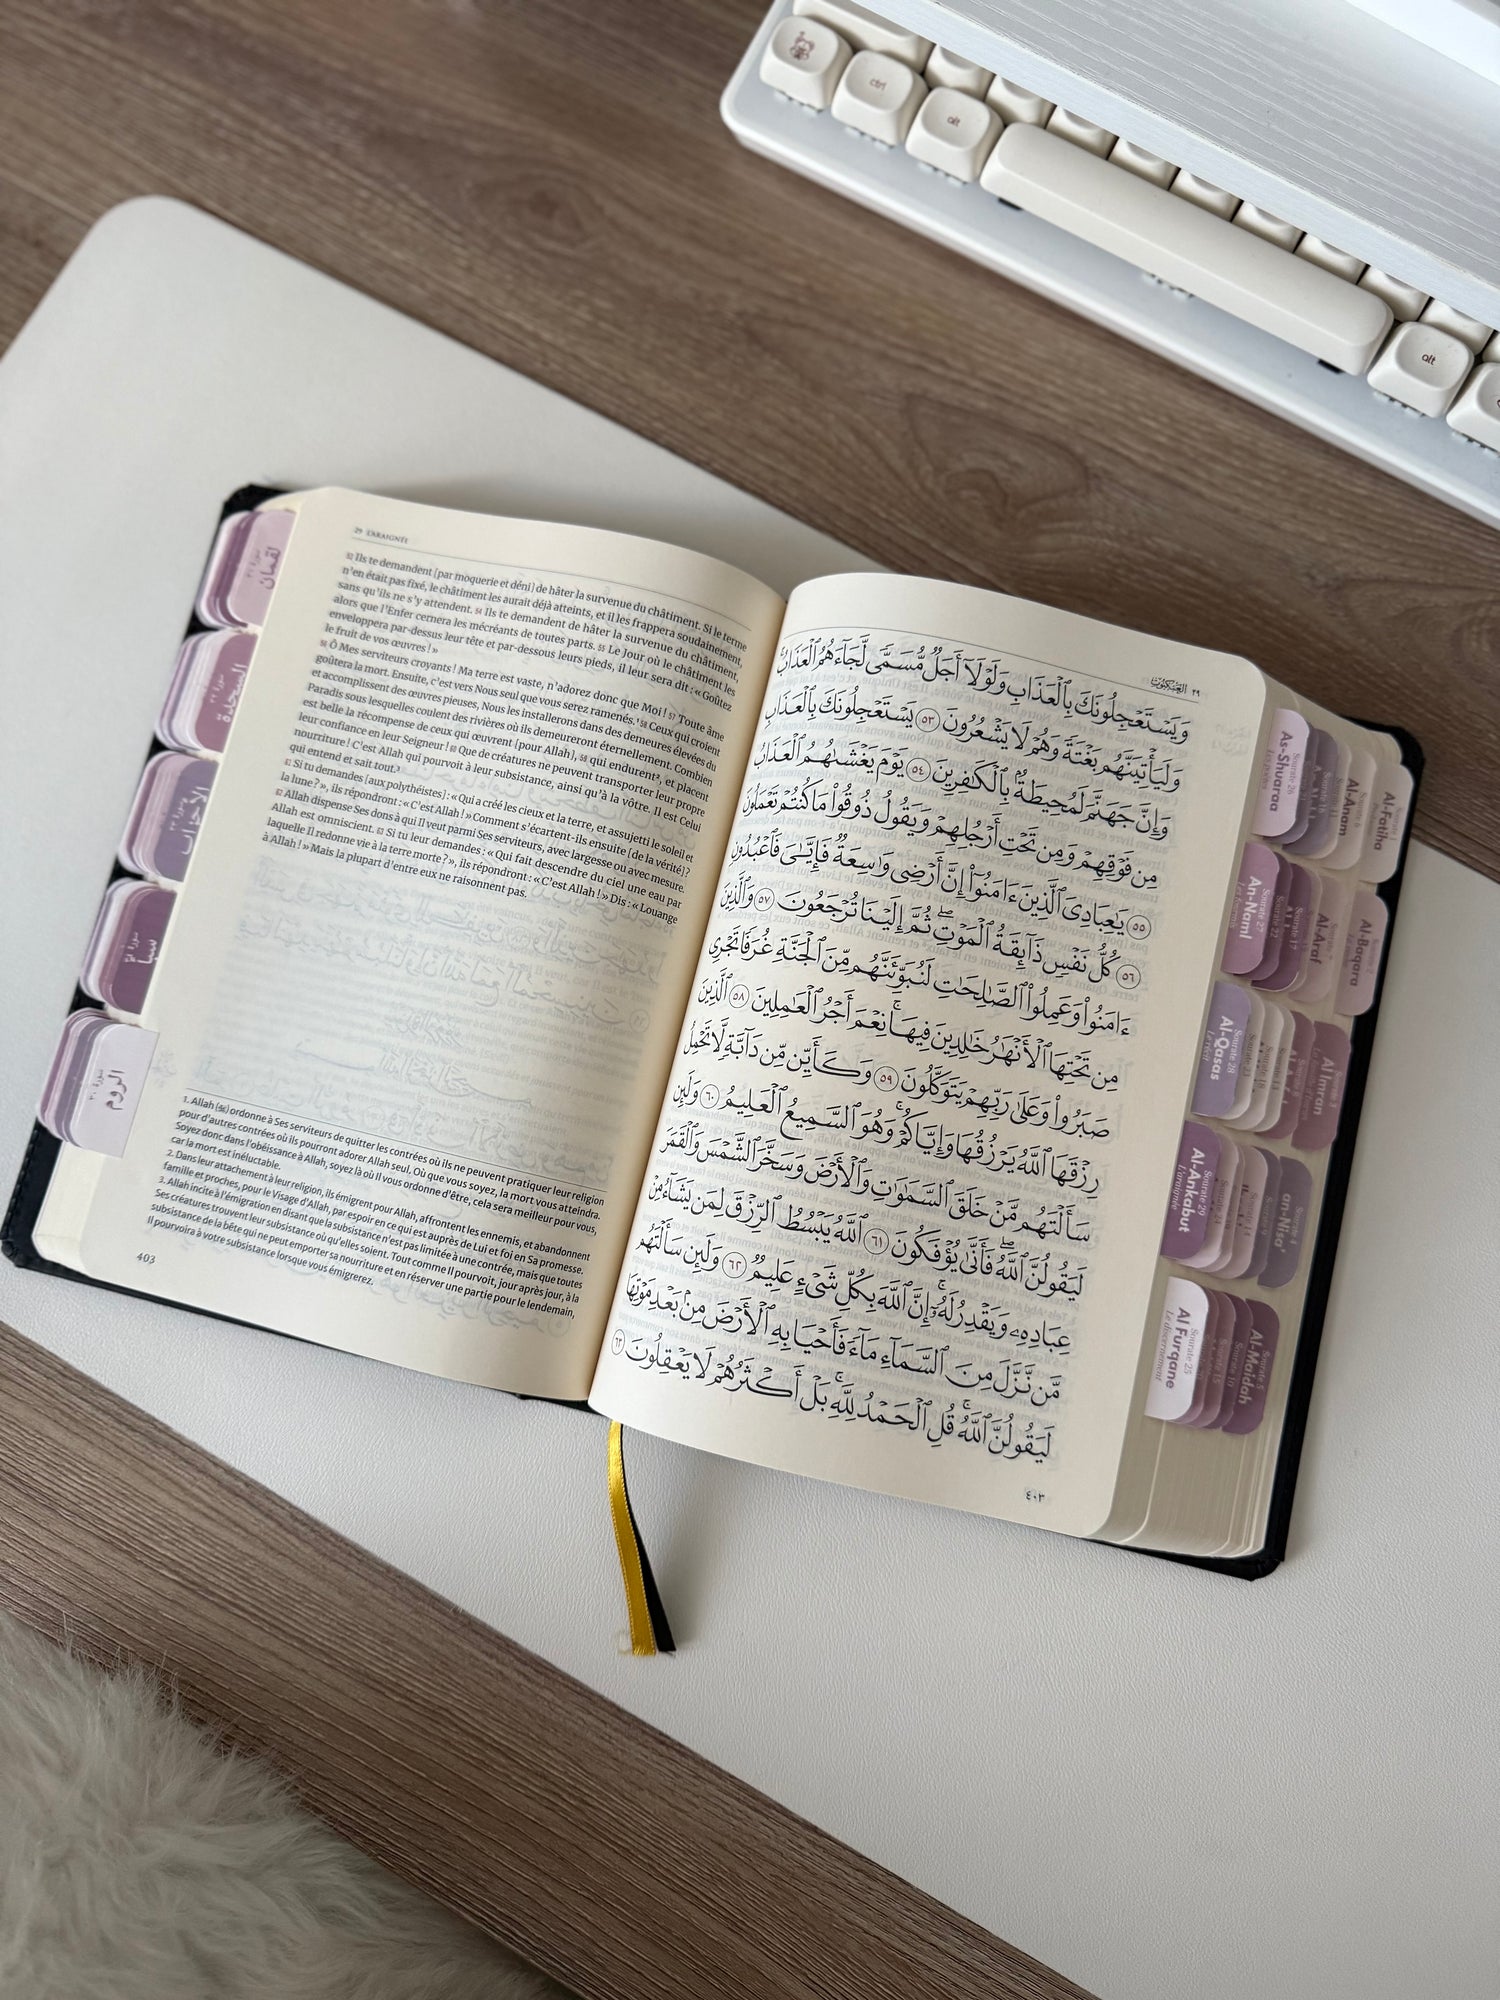 29 L'ARAIGNÉE
53 Ils te demandent [par moquerie et déni] de hâter la survenue du châtiment. Si le terme
n'en était pas fixé, le châtiment les aurait déjà atteints, et il les frappera soudainement,
sans qu'ils ne s'y attendent. 54 Ils te demandent de hâter la survenue du châtiment,
alors que l'Enfer cernera les mécréants de toutes parts. 55 Le Jour où le châtiment les
enveloppera par-dessus leur tête et par-dessous leurs pieds, il leur sera dit : « Goûtez
le fruit de vos œuvres ! »
56 Ô Mes serviteurs croyants ! Ma terre est vaste, n'adorez donc que Moi ! 57 Toute âme
goûtera la mort. Ensuite, c'est vers Nous seul que vous serez ramenés.¹ 58 Ceux qui croient
et accomplissent des œuvres pieuses, Nous les installerons dans des demeures élevées du
Paradis sous lesquelles coulent des rivières où ils demeureront éternellement. Combien
est belle la récompense de ceux qui œuvrent [pour Allah], 59 qui endurent², et placent
leur confiance en leur Seigneur ! 60 Que de créatures ne peuvent transporter leur propre
nourriture ! C'est Allah qui pourvoit à leur subsistance, ainsi qu'à la vôtre. Il est Celui
qui entend et sait tout.³
61 Si tu demandes [aux polythéistes] : « Qui a créé les cieux et la terre, et assujetti le soleil et
la lune ? », ils répondront : « C'est Allah ! » Comment s'écartent-ils ensuite [de la vérité] ?
62 Allah dispense Ses dons à qui Il veut parmi Ses serviteurs, avec largesse ou avec mesure.
Allah est omniscient. 63 Si tu leur demandes : « Qui fait descendre du ciel une eau par
laquelle Il redonne vie à la terre morte ? », ils répondront : « C'est Allah ! » Dis : « Louange
à Allah ! » Mais la plupart d'entre eux ne raisonnent pas.
1. Allah (ﷻ) ordonne à Ses serviteurs de quitter les contrées où ils ne peuvent pratiquer leur religion
pour d'autres contrées où ils pourront adorer Allah seul. Où que vous soyez, la mort vous atteindra.
Soyez donc dans l'obéissance à Allah, soyez là où il vous ordonne d'être, cela sera meilleur pour vous,
car la mort est inéluctable.
2. Dans leur attachement à leur religion, ils émigrent pour Allah, affrontent les ennemis, et abandonnent
famille et proches, pour le Visage d'Allah, par espoir en ce qui est auprès de Lui et foi en Sa promesse.
3. Allah incite à l'émigration en disant que la subsistance n'est pas limitée à une contrée, mais que toutes
Ses créatures trouvent leur subsistance où qu'elles soient. Tout comme Il pourvoit, jour après jour, à la
subsistance de la bête qui ne peut emporter sa nourriture et en réserver une partie pour le lendemain,
Il pourvoira à votre subsistance lorsque vous émigrerez.
403
٢٩ العنكبوت
وَيَسْتَعْجِلُونَكَ بِٱلْعَذَابِ وَلَوْلَآ أَجَلٌ مُّسَمًّى لَّجَآءَهُمُ ٱلْعَذَابُ
وَلَيَأْتِيَنَّهُم بَغْتَةً وَهُمْ لَا يَشْعُرُونَ ٥٣ يَسْتَعْجِلُونَكَ بِٱلْعَذَابِ
وَإِنَّ جَهَنَّمَ لَمُحِيطَةٌۢ بِٱلْكَٰفِرِينَ ٥٤ يَوْمَ يَغْشَىٰهُمُ ٱلْعَذَابُ
مِن فَوْقِهِمْ وَمِن تَحْتِ أَرْجُلِهِمْ وَيَقُولُ ذُوقُوا۟ مَا كُنتُمْ تَعْمَلُونَ
٥٥ يَٰعِبَادِىَ ٱلَّذِينَ ءَامَنُوٓا۟ إِنَّ أَرْضِى وَٰسِعَةٌ فَإِيَّٰىَ فَٱعْبُدُونِ
٥٦ كُلُّ نَفْسٍ ذَآئِقَةُ ٱلْمَوْتِ ۖ ثُمَّ إِلَيْنَا تُرْجَعُونَ ٥٧ وَٱلَّذِينَ
ءَامَنُوا۟ وَعَمِلُوا۟ ٱلصَّٰلِحَٰتِ لَنُبَوِّئَنَّهُم مِّنَ ٱلْجَنَّةِ غُرَفًا تَجْرِى
مِن تَحْتِهَا ٱلْأَنْهَٰرُ خَٰلِدِينَ فِيهَا ۚ نِعْمَ أَجْرُ ٱلْعَٰمِلِينَ ٥٨ ٱلَّذِينَ
صَبَرُوا۟ وَعَلَىٰ رَبِّهِمْ يَتَوَكَّلُونَ ٥٩ وَكَأَيِّن مِّن دَآبَّةٍ لَّا تَحْمِلُ
رِزْقَهَا ٱللَّهُ يَرْزُقُهَا وَإِيَّاكُمْ ۚ وَهُوَ ٱلسَّمِيعُ ٱلْعَلِيمُ ٦٠ وَلَئِن
سَأَلْتَهُم مَّنْ خَلَقَ ٱلسَّمَٰوَٰتِ وَٱلْأَرْضَ وَسَخَّرَ ٱلشَّمْسَ وَٱلْقَمَرَ
لَيَقُولُنَّ ٱللَّهُ ۖ فَأَنَّىٰ يُؤْفَكُونَ ٦١ ٱللَّهُ يَبْسُطُ ٱلرِّزْقَ لِمَن يَشَآءُ مِنْ
عِبَادِهِۦ وَيَقْدِرُ لَهُۥٓ ۚ إِنَّ ٱللَّهَ بِكُلِّ شَىْءٍ عَلِيمٌ ٦٢ وَلَئِن سَأَلْتَهُم
مَّن نَّزَّلَ مِنَ ٱلسَّمَآءِ مَآءً فَأَحْيَا بِهِ ٱلْأَرْضَ مِنۢ بَعْدِ مَوْتِهَا
لَيَقُولُنَّ ٱللَّهُ ۚ قُلِ ٱلْحَمْدُ لِلَّهِ ۚ بَلْ أَكْثَرُهُمْ لَا يَعْقِلُونَ ٦٣
٤٠٣
لقمان
السجدة
الأحزاب
سبأ
الروم
As-Shuaraa
Sourate 26
An-Naml
Sourate 27
Al-Qasas
Sourate 28
Le récit
Al-Ankabut
Sourate 29
L'araignée
Al Furqane
Sourate 25
Le discernement
Al-Anam
Al-Araf
Al-Fatiha
Al-Baqara
Al Imran
an-Nisa'
Al-Maidah
Sourate 5
ctrl
alt
alt